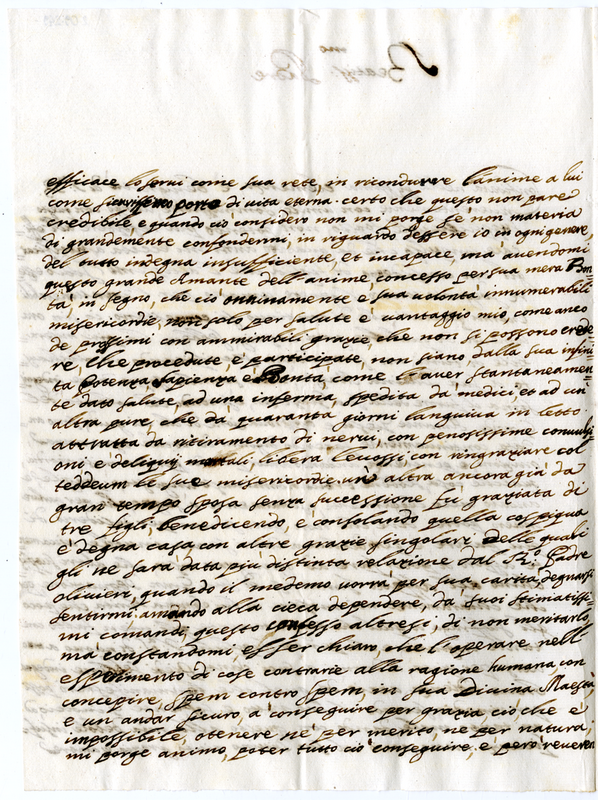 efficace lo servi come sua rete, in ricondurre l'anime a lui
come porto di vita eterna. certo che questo non pare
credibile, e quando ciò considero non mi porge se non materia
di grandemente confondermi, in riguardo d'essere io in ogni genere,
del tutto indegna insufficiente, et incapace, mà avendomi
questo grande Amante dell'anime, concesso per sua mera Bon
tà, in segno, che ciò onninamente è sua volontà innumerabili
misericordie, non solo per salute e vantaggio mio, come anco
de prossimi con ammirabili grazie, che non si possono crede=
re, che precedute, e participate, non siano dalla sua infini
ta Potenza Sapienza e Bontà, come l'aver stantaneamen=
te dato salute, ad una inferma, spedita da medici, et ad un'
altra pure, che da quaranta giorni languiva in letto
attratta da ritiramento di nervi, con penosissime convulsi
oni e deliquij mortali, libera levossi con ringraziare col
teddeum le sue misericordie, un' altra ancora già da
gran tempo sposa senza successione fu graziata di
tre figli, benedicendo, e consolando quella cospiqua
e degna casa, con altre grazie singolari delle quali
gli ne sarà data più distinta relazione dal R.o Padre
olivieri, quando il medemo vorrà per sua carità, degnarsi
sentirmi amando alla cieca dependere, da suoi stimatissi=
mi comandi, questo confesso altresi, di non meritarlo,
ma constandomi esser chiaro, che l'operare nell'
esperimento di cose contrarie alla ragione humana, con
concepire, spem contro spem, in sua Divina Maestà,
e un andar sicuro, a conseguire per grazia, ciò che è
impossibile, otenere ne per merito, ne per natura,
mi porge animo, poter tutto ciò conseguire, e però reveren